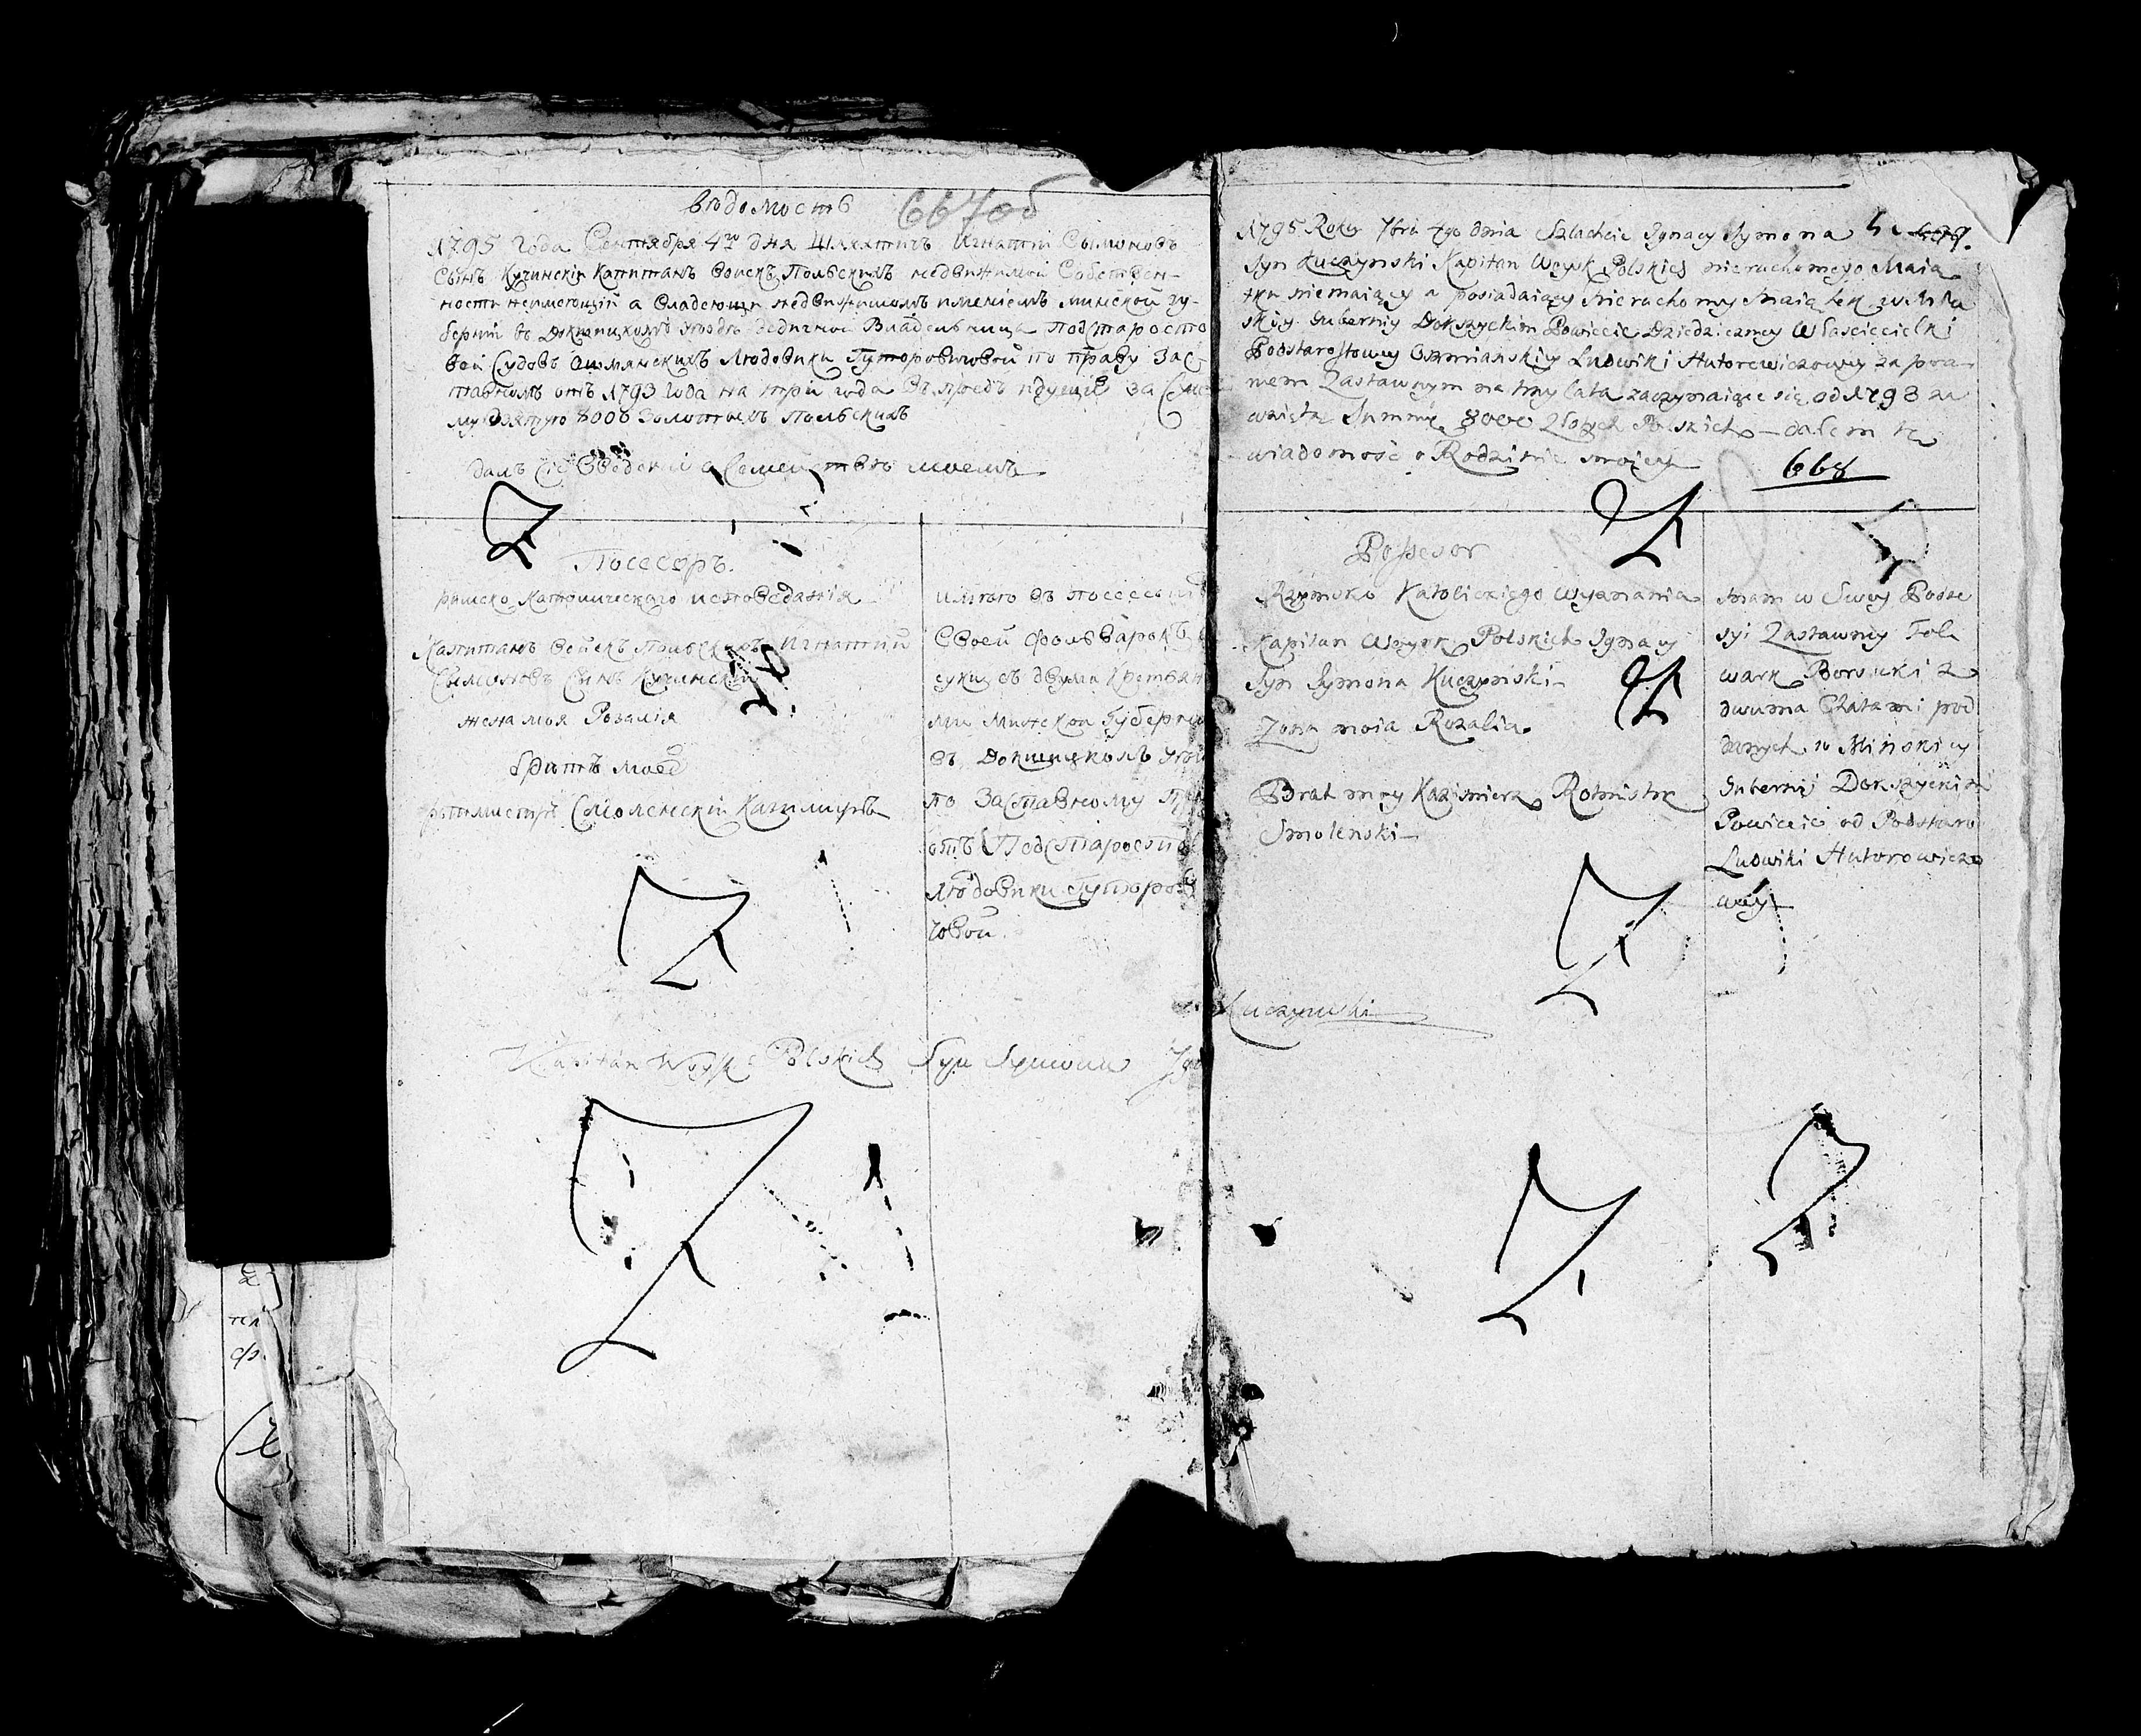 вѣдомостъ
667об
1795 года Сентября 4го дня Шляхтичъ Игнатій Сымоновъ
Сынъ Кучинскій Капитанъ Воискъ Польскихъ недвижимой Собствен-
ности неимеющій а Владеющи недвижимомъ имениемъ Минской гу-
берній въ Докшицкомъ уездѣ дедичной Владельница Подстаросто
вой Судовъ Ошмянскихъ Людовики Гуторовичовой по праву Зас-
тавномъ отъ 1793 года на три года въпредъ идущіе за Сум
му Взятую 8000 Золотыхъ Польскихъ
далъ Сіе Вѣдѣній о Семействѣ моемъ
Посесоръ.
римско Католическаго исповеданія
Капитанъ Войскъ Польскихъ Игнатій
Сымоновъ Сынъ Кучинскій
жена моя Розалія
братъ мой
ротмистръ Смоленскій Казимиръ
имѣю въ посессыи
Своей фольварокъ
суки съ двума Крестьян
ми Минской Губерній
въ Докшицкомъ уез
по Заставному пр
отъ Подстаросто
Людовики Гуторов
човой.
Kapitan Woysk Polskich Syn Symona Ign
1795 Roku 7bra 4go dnia Szlachcic Ignacy Symona
Syn Kuczynski Kapitan Woysk Polskich nieruchomego Maia
tku niemaiący a posiadaiący nieruchomy maiątek w Min
skiy Guberniy Dokszyckim Powiecie Dziedziczney Własciecielki
Podstarostowey Oszmianskiey Ludwiki Hutorowiczowey za pra
wem Zastawnym na trzy lata zaczynaiące się od 1793 za
wzięta Summę 8000 Złotych Polskich – dałem tę
wiadomość o Rodzinie moiey
668
Possesor
Rzymsko Katolickiego wyznania
Kapitan Woysk Polskich Ignacy
Syn Symona Kuczynski
Zona moia Rozalia.
Brat moy Kazimierz Rotmistrz
Smolenski
Mam w Swey Posse
syi Zastawny Fol
wark Borsuki z
dwuma Chatami pod
danych w Minskiey
Gubernij Dokszyckim
Powiecie od Podstaro
Ludwiki Hutorowiczo
wey
Kuczynski